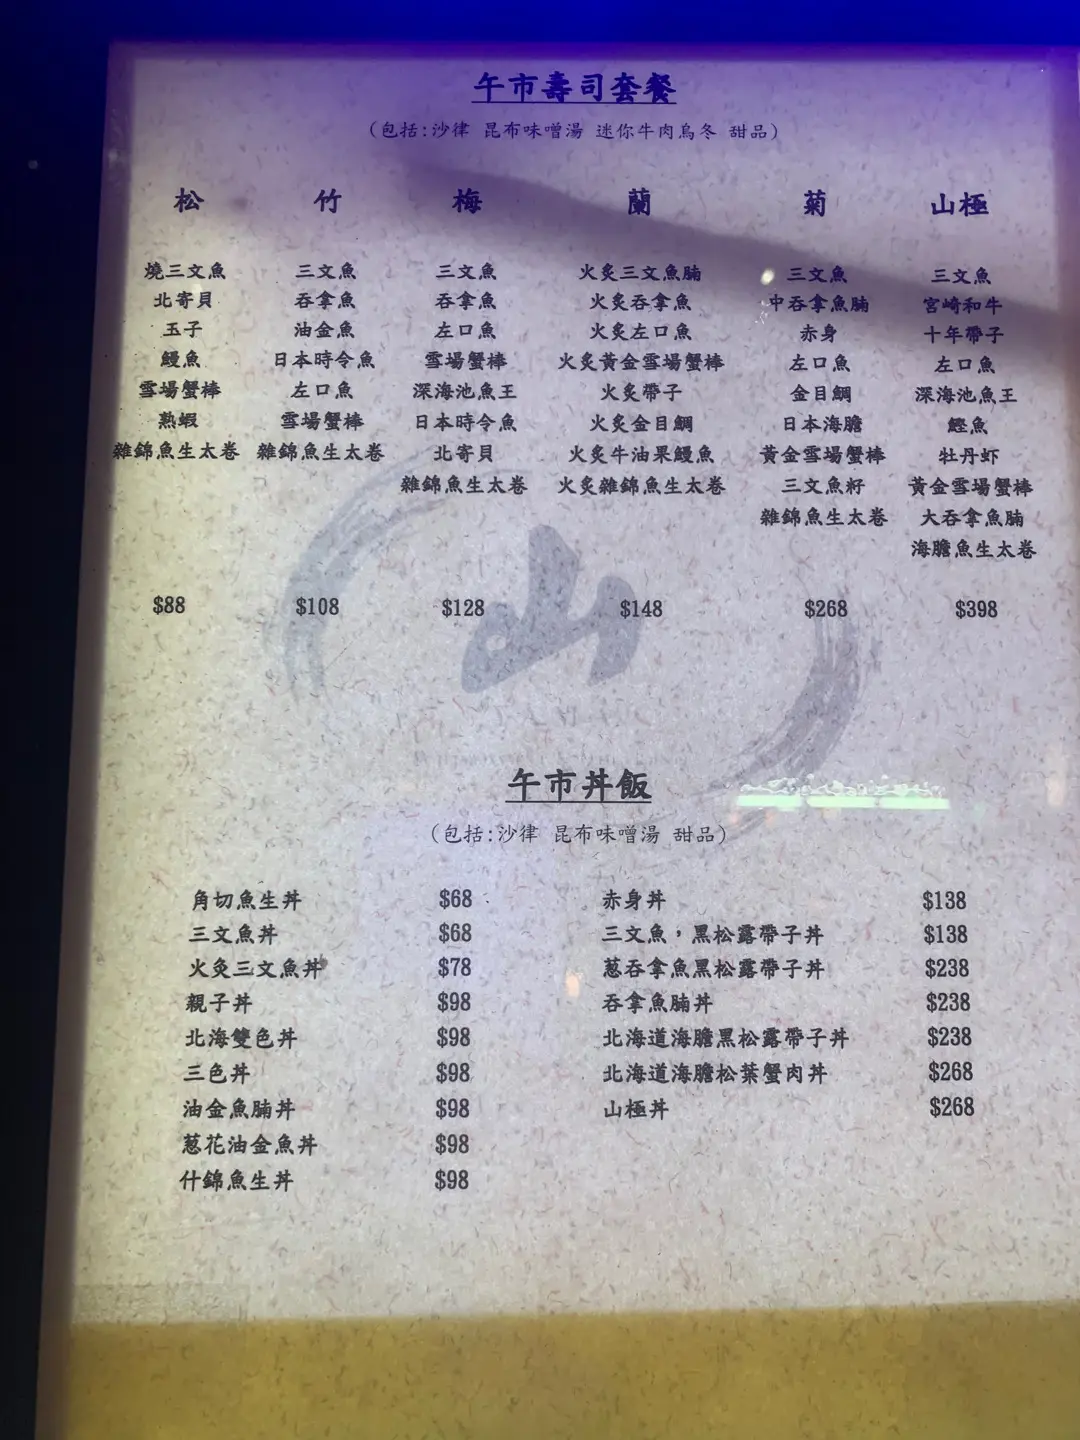 午市壽司套餐
(包括:沙律 昆布味噌湯 迷你牛肉烏冬 甜品)
松 竹 梅 蘭 菊 山極
燒三文魚 三文魚 三文魚 火炙三文魚腩 三文魚 三文魚
北寄貝 吞拿魚 吞拿魚 火炙吞拿魚 中吞拿魚腩 宮崎和牛
玉子 油金魚 左口魚 火炙左口魚 赤身 十年帶子
鰻魚 日本時令魚 雪場蟹棒 火炙黃金雪場蟹棒 左口魚 左口魚
雪場蟹棒 左口魚 深海池魚王 火炙帶子 金目鯛 深海池魚王
熟蝦 雪場蟹棒 日本時令魚 火炙金目鯛 日本海膽 鰹魚
雜錦魚生太卷 雜錦魚生太卷 北寄貝 火炙牛油果鰻魚 黃金雪場蟹棒 牡丹虾
雜錦魚生太卷 火炙雜錦魚生太卷 三文魚籽 黃金雪場蟹棒
雜錦魚生太卷 大吞拿魚腩
海膽魚生太卷
$88 $108 $128 $148 $268 $398
山
午市丼飯
(包括:沙律 昆布味噌湯 甜品)
角切魚生丼 $68 赤身丼 $138
三文魚丼 $68 三文魚，黑松露帶子丼 $138
火灸三文魚丼 $78 葱吞拿魚黑松露帶子丼 $238
親子丼 $98 吞拿魚腩丼 $238
北海雙色丼 $98 北海道海膽黑松露帶子丼 $238
三色丼 $98 北海道海膽松葉蟹肉丼 $268
油金魚腩丼 $98 山極丼 $268
葱花油金魚丼 $98
什錦魚生丼 $98